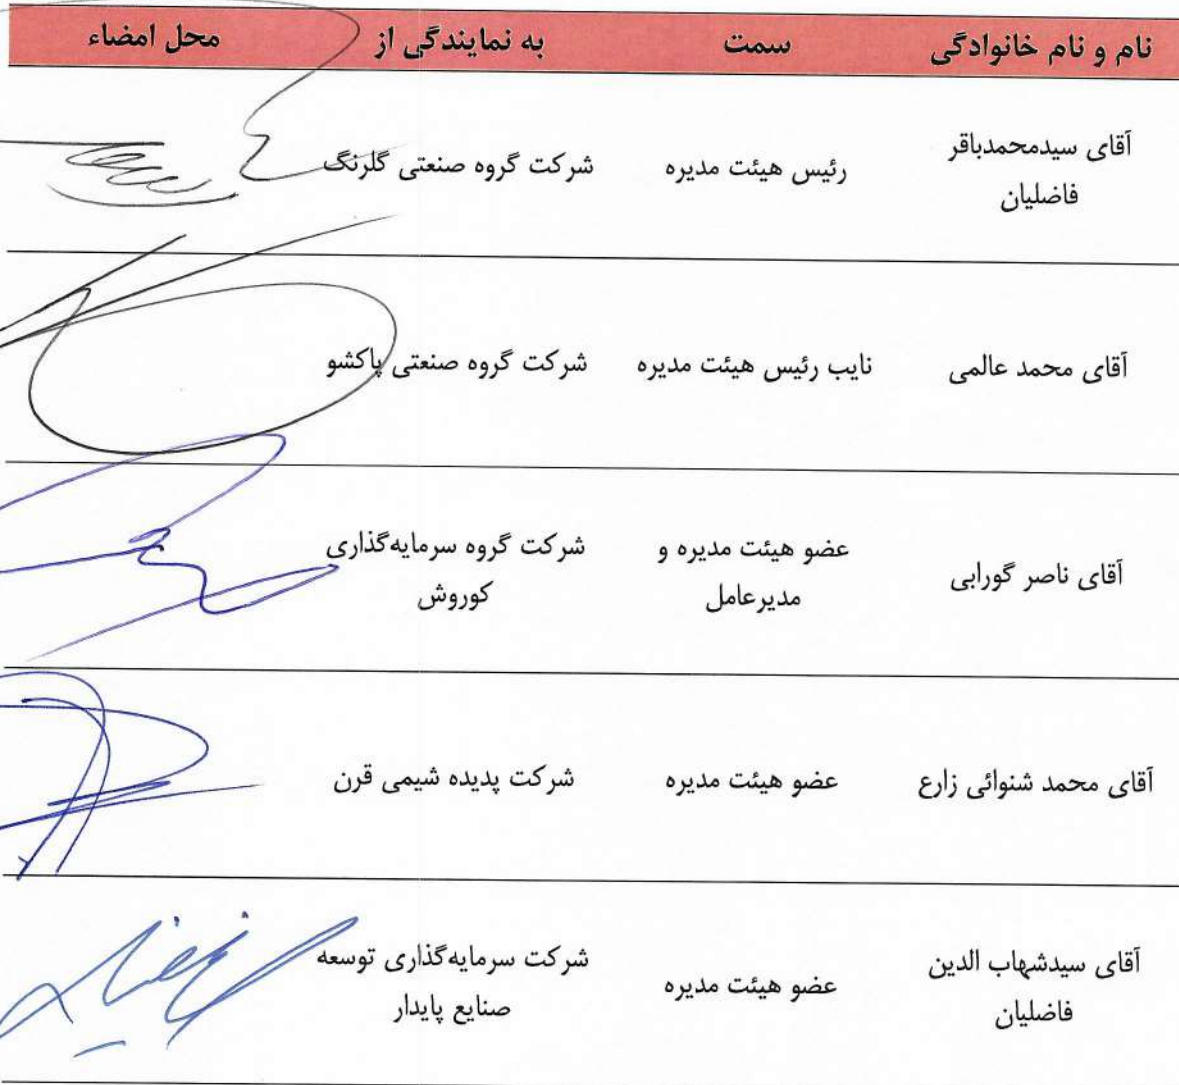 نام و نام خانوادگی سمت به نمایندگی از محل امضاء
آقای سیدمحمدباقر
فاضلیان
رئیس هیئت مدیره
شرکت گروه صنعتی گلرنگ
آقای محمد عالمی
نایب رئیس هیئت مدیره
شرکت گروه صنعتی پاکشو
آقای ناصر گورابی
عضو هیئت مدیره و
مدیرعامل
شرکت گروه سرمایه‌گذاری
کوروش
آقای محمد شنوائی زارع
عضو هیئت مدیره
شرکت پدیده شیمی قرن
آقای سیدشهاب الدین
فاضلیان
عضو هیئت مدیره
شرکت سرمایه‌گذاری توسعه
صنایع پایدار